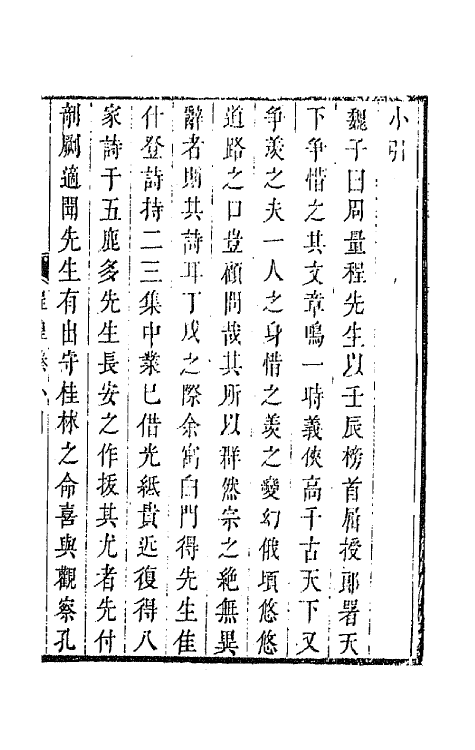 小引
魏子曰周量程先生以壬辰榜首屈授郎署天
下爭惜之其文章鳴一時義俠高千古天下又
爭羨之夫一人之身惜之羨之變幻俄頃悠悠
道路之口豈顧問哉其所以群然宗之絶無異
辭者則其詩耳丁戊之際余寓白門得先生佳
什登詩持二三集中業已借光紙貴近復得八
家詩于五鹿多先生長安之作拔其尤者先付
剞劂適聞先生有出守桂林之命喜與觀察孔